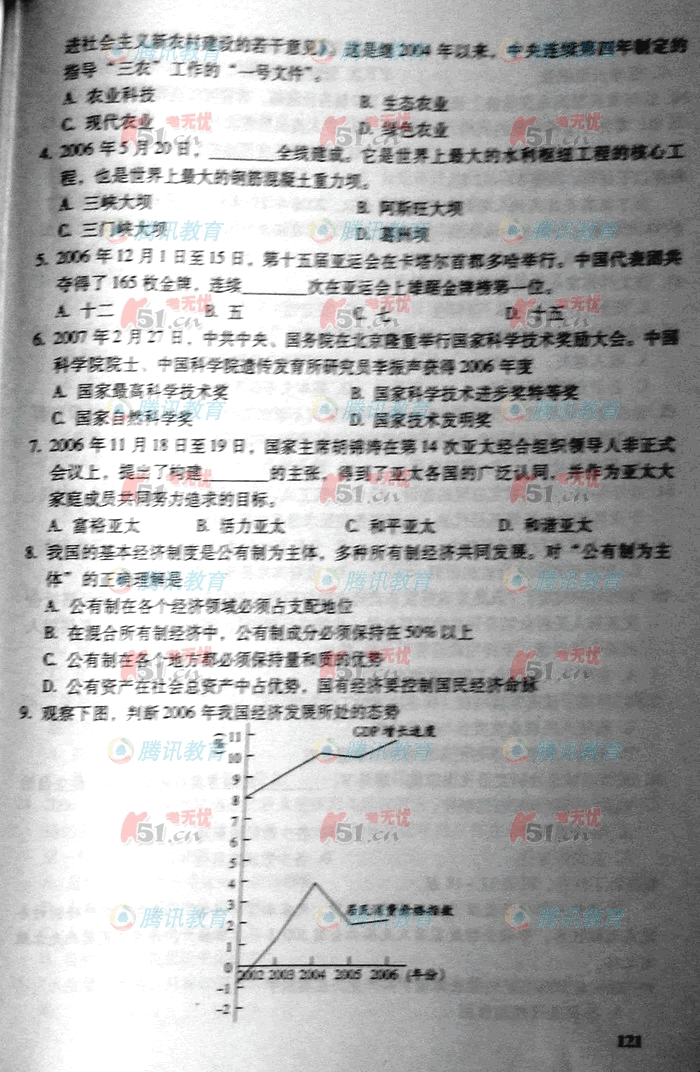 进社会主义新农村建设的若干意见》。这是继 2004 年以来，中央连续第四年制定的
指导“三农”工作的“一号文件”。
A. 农业科技 B. 生态农业
C. 现代农业 D. 绿色农业
4. 2006 年 5 月 20 日，______全线建成。它是世界上最大的水利枢纽工程的核心工
程，也是世界上最大的钢筋混凝土重力坝。
A. 三峡大坝 B. 阿斯旺大坝
C. 三门峡大坝 D. 葛洲坝
5. 2006 年 12 月 1 日至 15 日，第十五届亚运会在卡塔尔首都多哈举行。中国代表团共
夺得了 165 枚金牌，连续______次在亚运会上雄踞金牌榜第一位。
A. 十二 B. 五 C. 七 D. 十五
6. 2007 年 2 月 27 日，中共中央、国务院在北京隆重举行国家科学技术奖励大会。中国
科学院院士、中国科学院遗传发育所研究员李振声获得 2006 年度
A. 国家最高科学技术奖 B. 国家科学技术进步奖特等奖
C. 国家自然科学奖 D. 国家技术发明奖
7. 2006 年 11 月 18 日至 19 日，国家主席胡锦涛在第 14 次亚太经合组织领导人非正式
会议上，提出了构建______的主张，得到了亚太各国的广泛认同，并作为亚太大
家庭成员共同努力追求的目标。
A. 富裕亚太 B. 活力亚太 C. 和平亚太 D. 和谐亚太
8. 我国的基本经济制度是公有制为主体，多种所有制经济共同发展。对“公有制为主
体”的正确理解是
A. 公有制在各个经济领域必须占支配地位
B. 在混合所有制经济中，公有制成分必须保持在 50% 以上
C. 公有制在各个地方都必须保持量和质的优势
D. 公有资产在社会总资产中占优势，国有经济要控制国民经济命脉
9. 观察下图，判断 2006 年我国经济发展所处的态势
(%)
11
10
9
8
7
6
5
4
3
2
1
0
-1
-2
GDP 增长速度
居民消费价格指数
2002 2003 2004 2005 2006 (年份)
121
腾讯教育
考无忧
51.cn